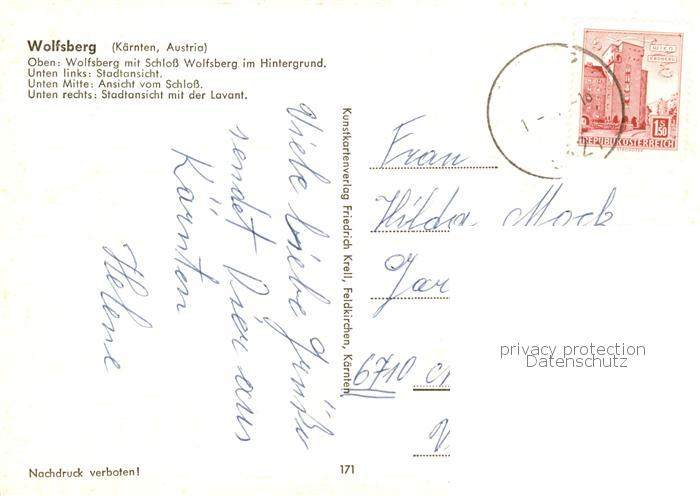 Wolfsberg (Kärnten, Austria)
Oben: Wolfsberg mit Schloß Wolfsberg im Hintergrund.
Unten links: Stadtansicht.
Unten Mitte: Ansicht vom Schloß.
Unten rechts: Stadtansicht mit der Lavant.
Viele liebe Grüße
sendet Dir aus
Kärnten
Helene
Kunstkartenverlag Friedrich Krell, Feldkirchen, Kärnten
WIEN
ERDBERG
1S50
REPUBLIK ÖSTERREICH
Frau
Hilda Mock
Gar
6710
privacy protection
Datenschutz
Nachdruck verboten!
171